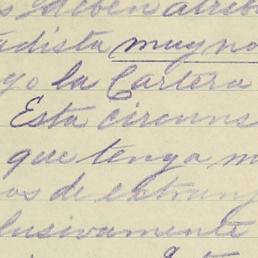 s deben atrib
adista muy no
yo la Cartera
Esta circuns
que tenga m
os de extranj
lusivamente